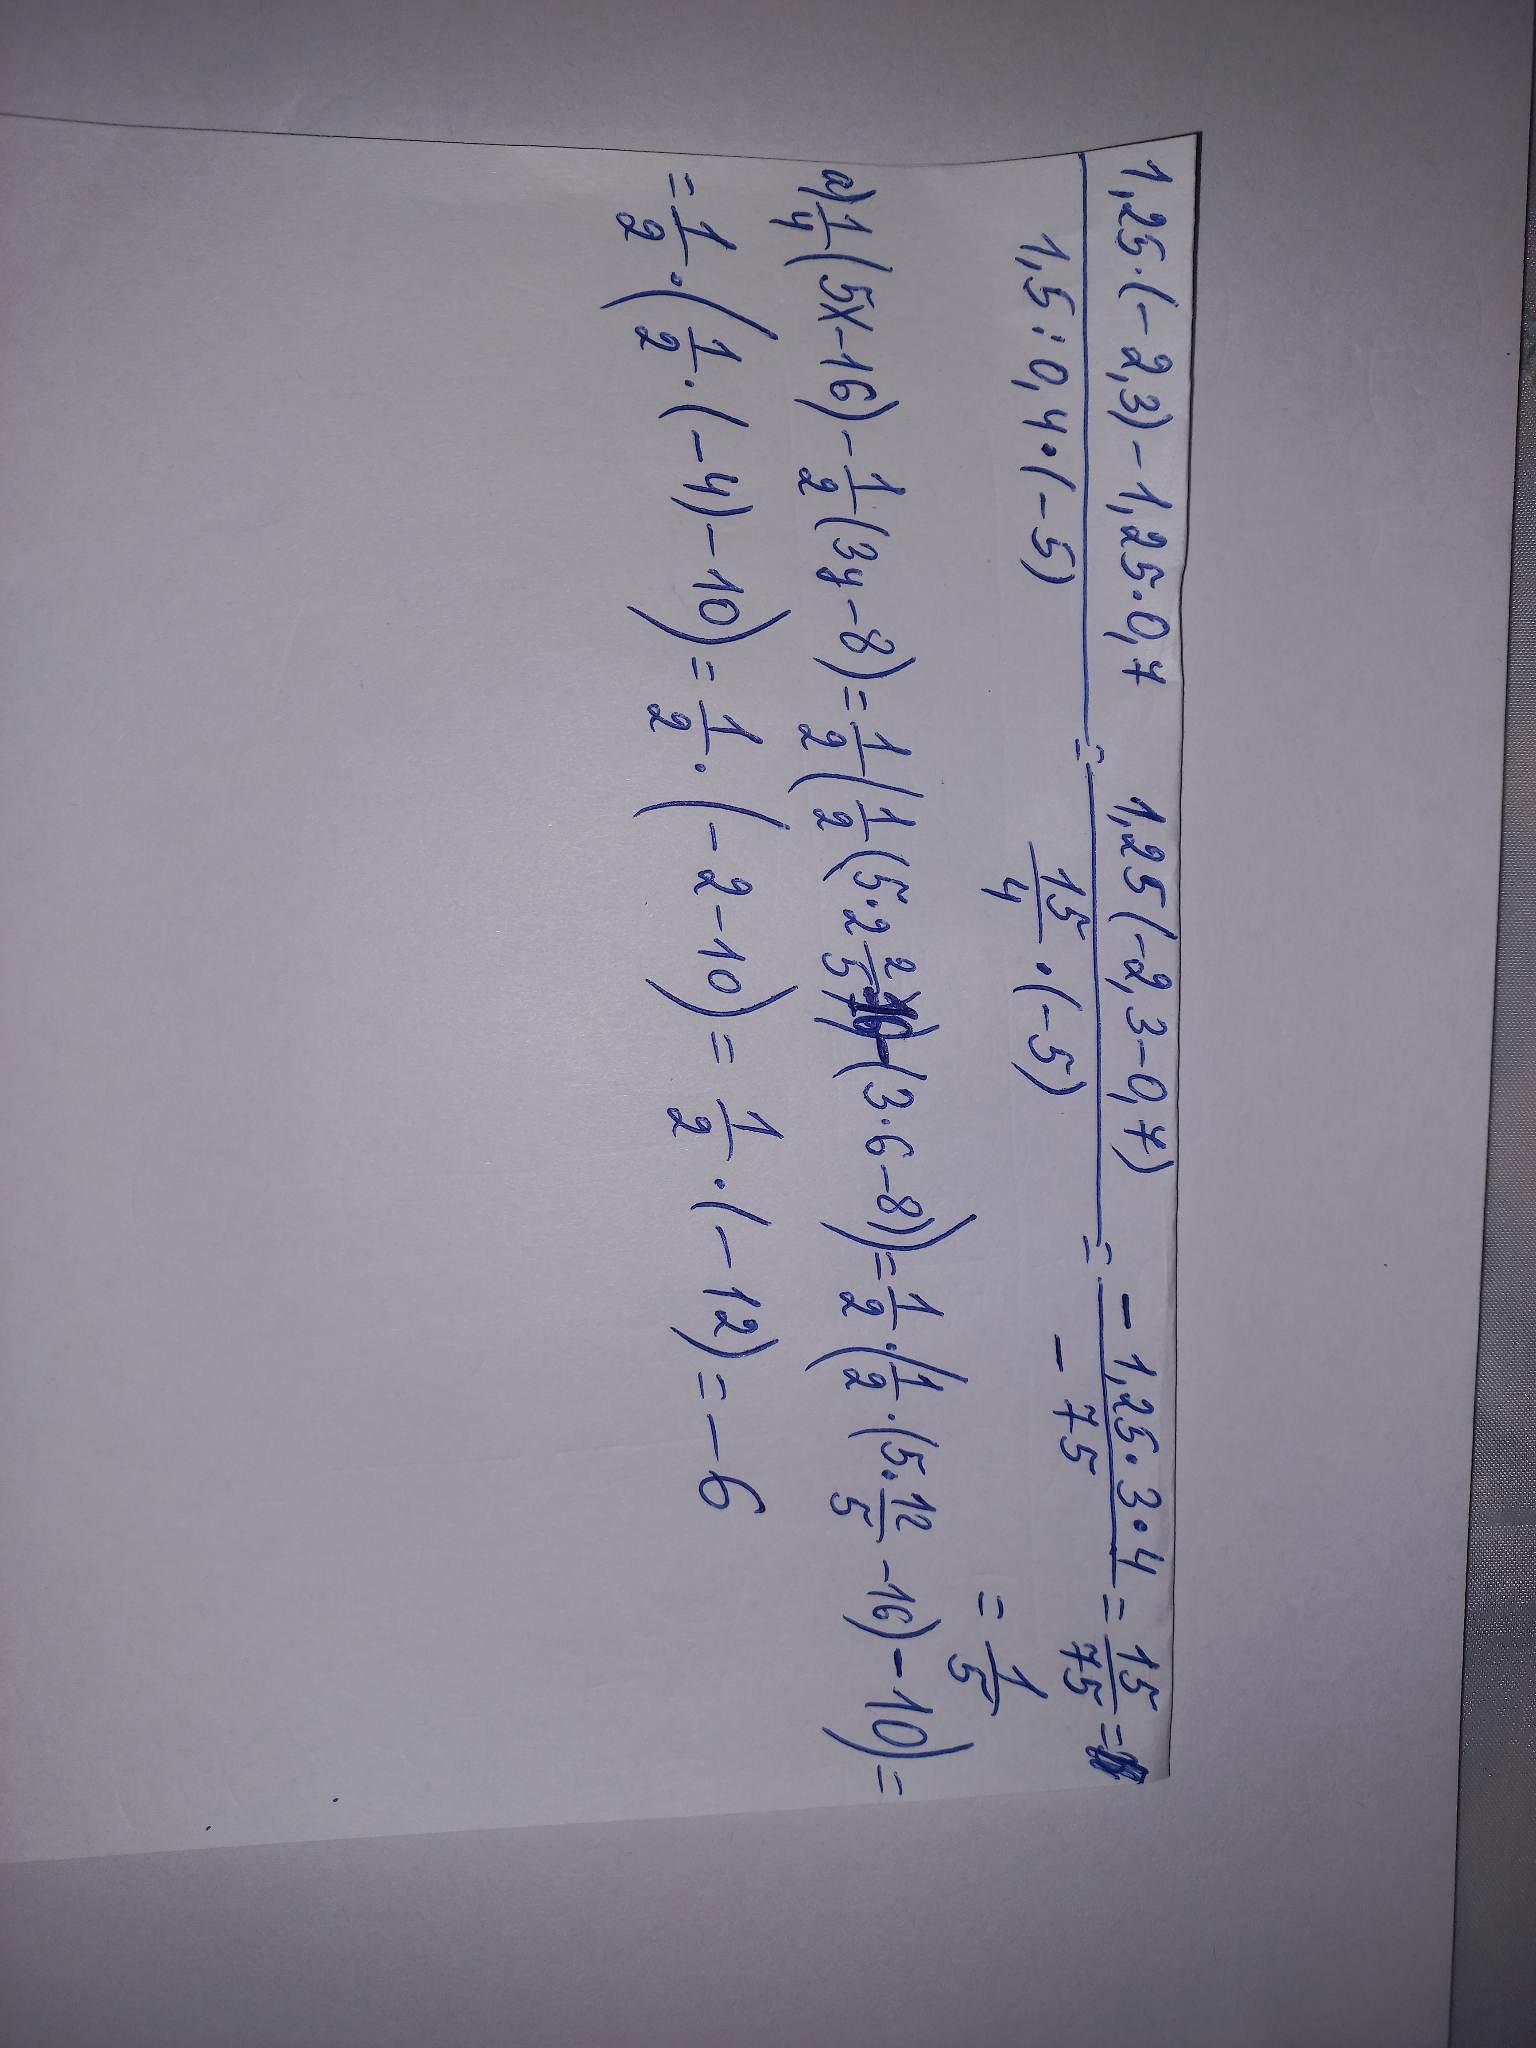 1,25·(-2,3)-1,25·0,7 / 1,5:0,4·(-5) = 1,25(-2,3-0,7) / 15/4·(-5) = -1,25·3·4 / -75 = 15/75 =
= 1/5
а) 1/4(5x-16)-1/2(3y-8)=1/2(1/2(5·2 2/5-16)-(3·6-8))=1/2·(1/2·(5·12/5-16)-10)=
=1/2·(1/2·(-4)-10)=1/2·(-2-10)=1/2·(-12)=-6